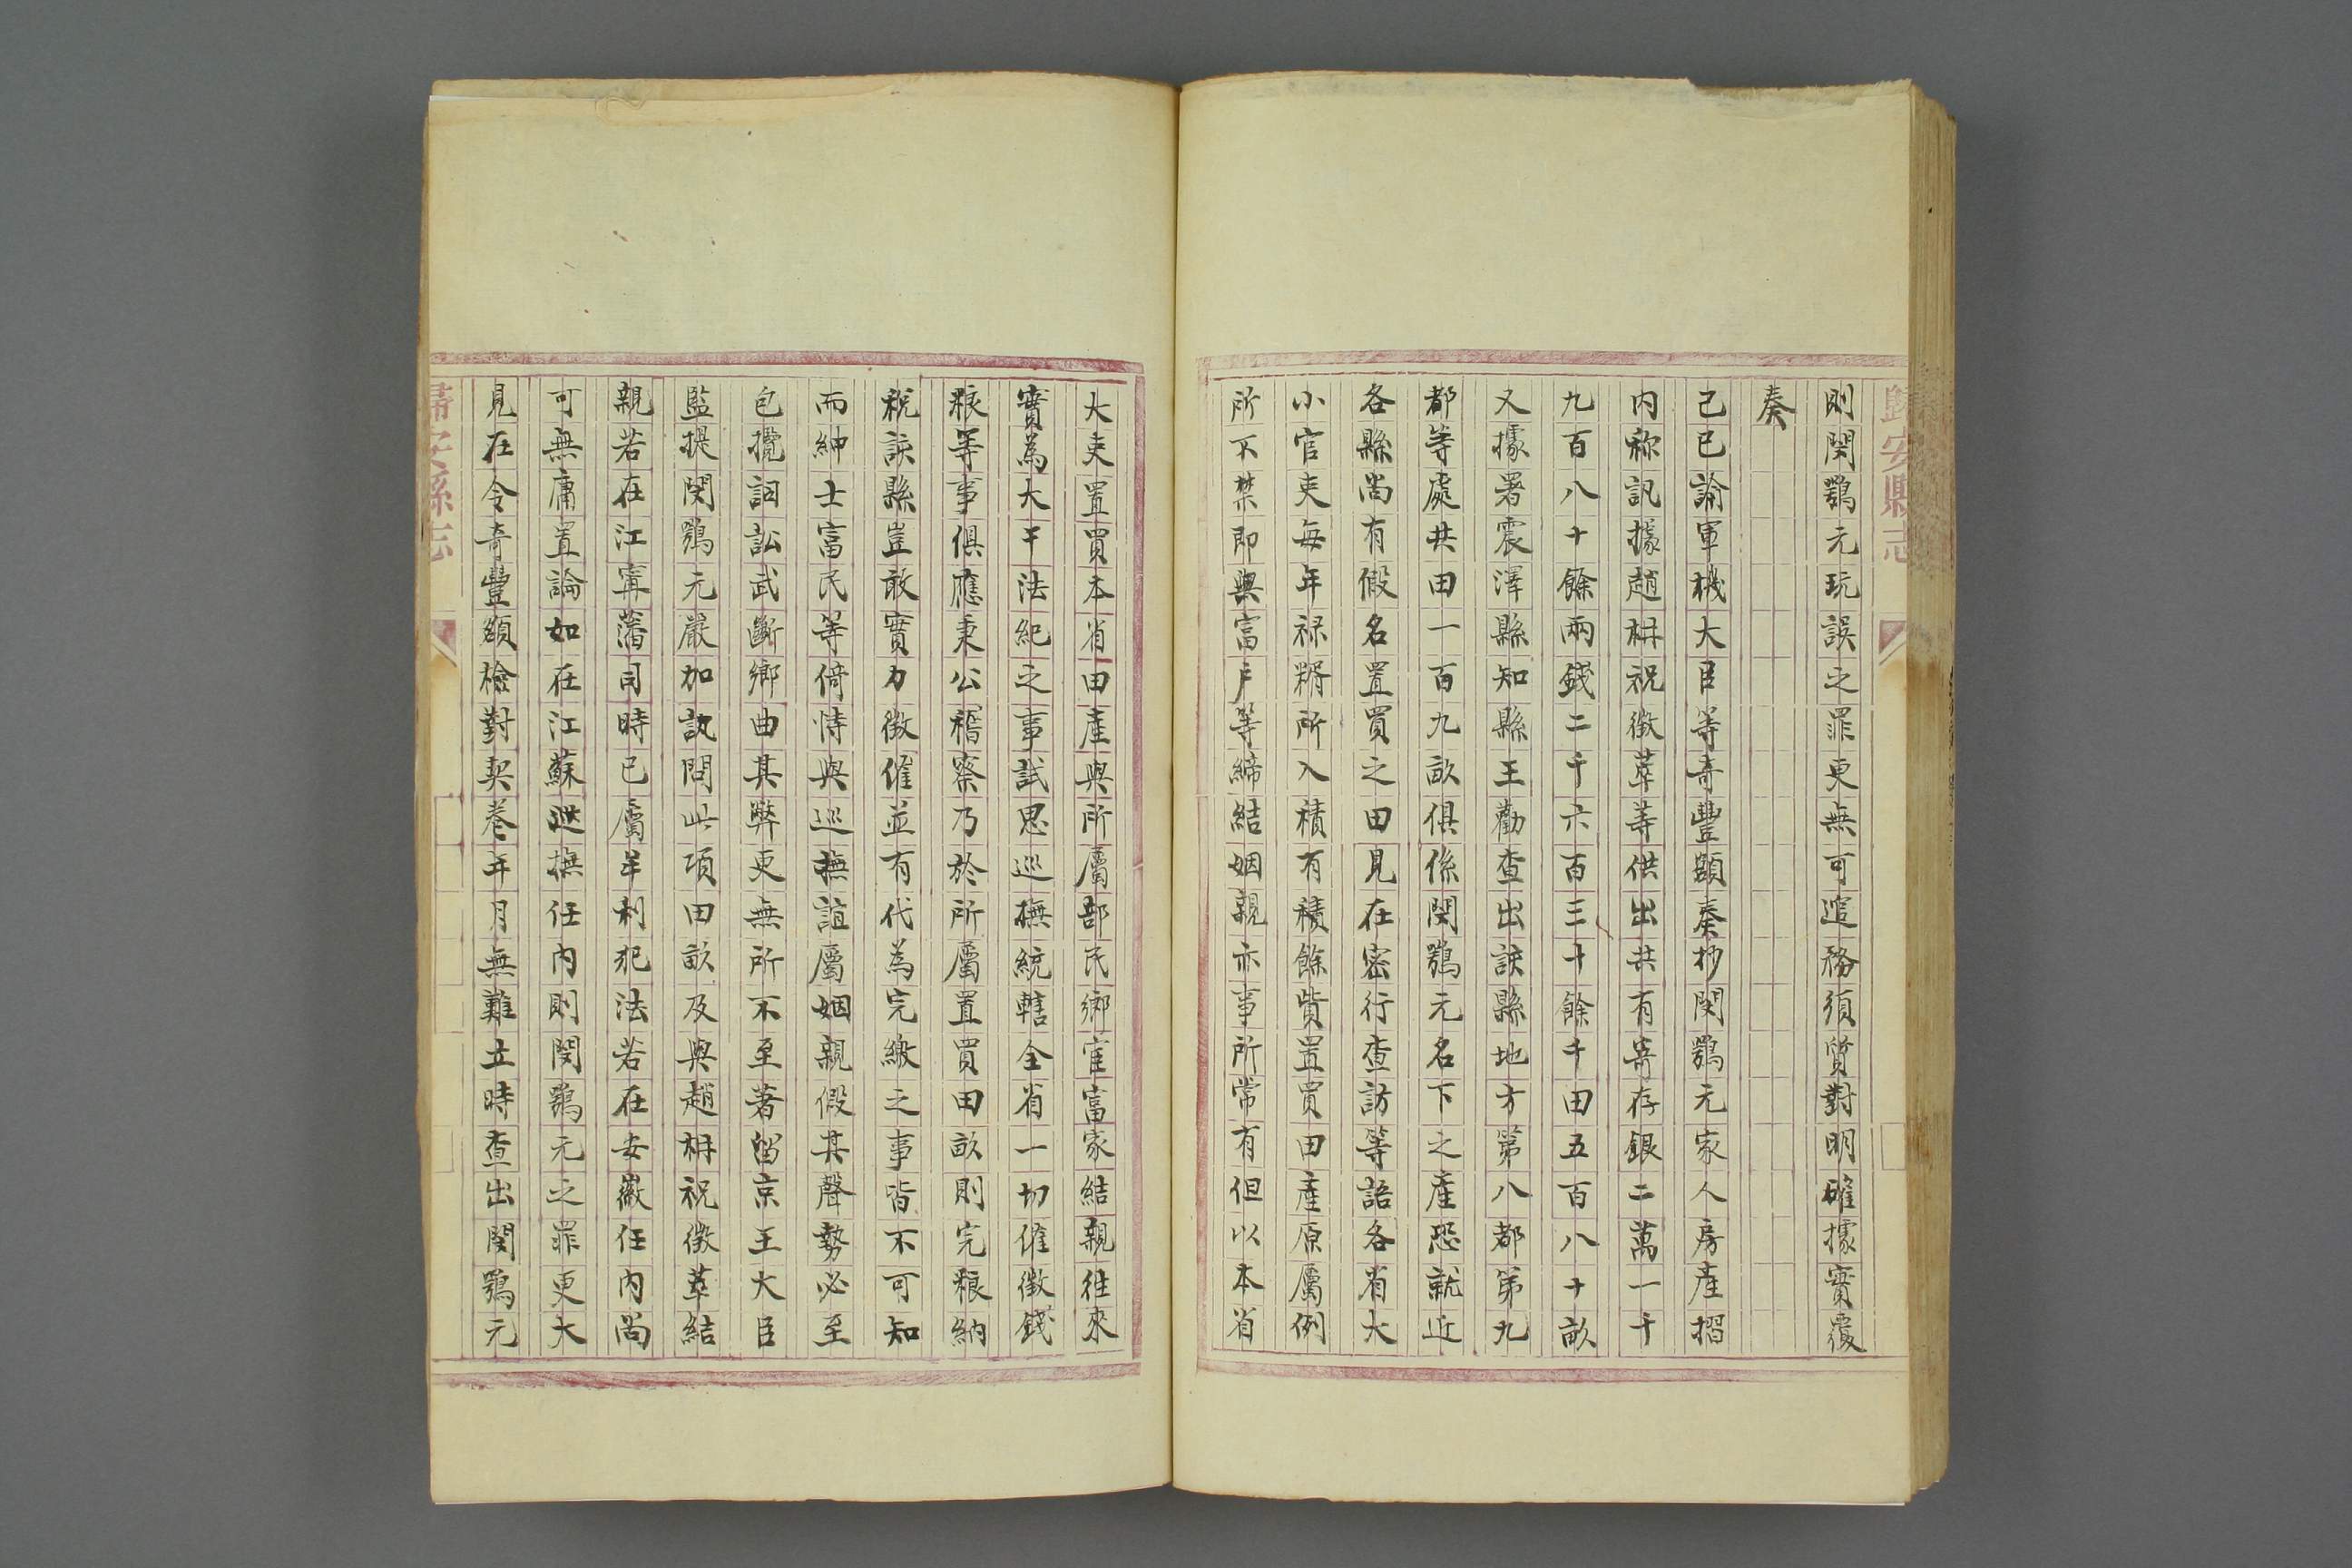 歸安縣志
則閔鶚元玩誤之罪更無可逭務須質對明確據實覆
奏
己巳諭軍機大臣等奇豐額奏抄閔鶚元家人房產摺
内称訊據趙枡祝徵萃等供出共有寄存銀二萬一千
九百八十餘兩錢二千六百三十餘千田五百八十畝
又據署震澤縣知縣王勸查出該縣地方第八都第九
都等處共田一百九畝俱係閔鶚元名下之產恐就近
各縣尚有假名置買之田見在密行查訪等語各省大
小官吏每年祿糈所入積有積餘貲置買田產原屬例
所不禁即與富戶等締結姻親亦事所常有但以本省
大吏置買本省田產與所屬部民鄉宦富家結親往來
實為大干法紀之事試思巡撫統轄全省一切催徵錢
粮等事俱應秉公稽察乃於所屬置買田畝則完粮納
税該縣豈敢實力徵催並有代為完繳之事皆不可知
而紳士富民等倚恃與巡撫誼屬姻親假其聲勢必至
包攬詞訟武斷鄉曲其弊更無所不至著留京王大臣
監提閔鶚元嚴加訊問此項田畝及與趙枡祝徵萃結
親若在江寧藩司時已屬牟利犯法若在安徽任内尚
可無庸置論如在江蘇巡撫任内則閔鶚元之罪更大
見在令奇豐額檢對契卷年月無難立時查出閔鶚元
歸安縣志